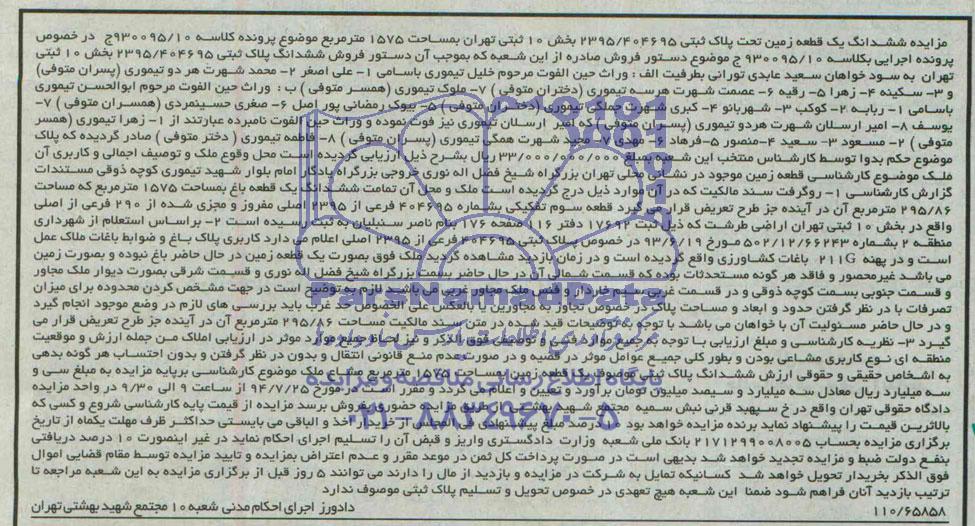 مزایده ششدانگ یک قطعه زمین تحت پلاک ثبتی ۲۳۹۵/۴۰۴۶۹۵ بخش ۱۰ ثبتی تهران بمساحت ۱۵۷۵ مترمربع موضوع پرونده کلاسه ۹۳۰۰۹۵/۱۰ج در خصوص
پرونده اجرایی بکلاسه ۹۳۰۰۹۵/۱۰ ج موضوع دستور فروش صادره از این شعبه که بموجب آن دستور فروش ششدانگ پلاک ثبتی ۲۳۹۵/۴۰۴۶۹۵ بخش ۱۰ ثبتی
تهران به سود خواهان سعید عابدی تورانی بطرفیت الف : وراث حین الفوت مرحوم خلیل تیموری باسامی ۱- علی اصغر ۲- محمد شهرت هر دو تیموری (پسران متوفی)
و ۳- سکینه ۴- زهرا ۵- رقیه ۶- عصمت شهرت هرسه تیموری (دختران متوفی) ۷- ملوک تیموری (همسر متوفی) ب : وراث حین الفوت مرحوم ابوالحسن تیموری
باسامی ۱- ربابه ۲- کوکب ۳- شهربانو ۴- کبری شهرت جملگی تیموری (دختران متوفی) ۵- بیوک رمضانی پور اصل ۶- صغری حسینمردی (همسران متوفی) ۷-
یوسف ۸- امیر ارسلان شهرت هردو تیموری (پسران متوفی) که امیر ارسلان تیموری نیز فوت نموده و وراث حین الفوت نامبرده عبارتند از ۱- زهرا تیموری (همسر
متوفی ) ۲- مسعود ۳- سعید ۴-منصور ۵-فرهاد ۶- مهدی ۷- مجید شهرت همگی تیموری (پسران متوفی ) ۸- فاطمه تیموری ( دختر متوفی) صادر گردیده که پلاک
موضوع حکم بدوا توسط کارشناس منتخب این شعبه بمبلغ ۳۳/۰۰۰/۰۰۰/۰۰۰ ریال بشرح ذیل ارزیابی گردیده است محل وقوع ملک و توصیف اجمالی و کاربری آن
ملک موضوع کارشناسی قطعه زمین موجود در نشانی محلی تهران بزرگراه شیخ فضل اله نوری خروجی بزرگراه یادگار امام بلوار شهید تیموری کوچه ذوقی مستندات
گزارش کارشناسی ۱- روگرفت سند مالکیت که در آن موارد ذیل درج گردیده است ملک و محل آن تمامت ششدانگ یک قطعه باغ بمساحت ۱۵۷۵ مترمربع که مساحت
۲۹۵/۸۶ مترمربع آن در آینده جز طرح تعریض قرار می گیرد قطعه سوم تفکیکی بشماره ۴۰۴۶۹۵ فرعی از ۲۳۹۵ اصلی مفروز و مجزی شده از ۲۹۰ فرعی از اصلی
واقع در بخش ۱۰ ثبتی تهران اراضی طرشت که ذیل ثبت ۱۷۶۹۲ دفتر ۱۱۶ صفحه ۱۷۶ بنام ناصر سنبلیان به ثبت رسیده است ۲- براساس استعلام از شهرداری
منطقه ۲ بشماره ۵۰۲/۱۲/۶۶۲۴۳ مورخ ۹۳/۶/۱۹ در خصوص پلاک ثبتی ۴۰۴۶۹۵فرعی از ۲۳۹۵ اصلی اعلام می دارد کاربری پلاک باغ و ضوابط باغات ملاک عمل
است و در پهنه G۲۱۱ باغات کشاورزی واقع گردیده است و در زمان بازدید مشاهده گردید ملک فوق بصورت یک قطعه زمین در حال حاضر باغ نبوده و بصورت زمین
می باشد غیرمحصور و فاقد هر گونه مستحدثات بوده که قسمت شمالی آن در حال حاضر بسمت بزرگراه شیخ فضل اله نوری و قسمت شرقی بصورت دیوار ملک مجاور
و قسمت جنوبی بسمت کوچه ذوقی و در قسمت غربی سیم خاردار و فنس ملک مجاور غربی می باشد لازم به توضیح است در جهت مشخص کردن محدوده برای میزان
تصرفات با در نظر گرفتن حدود و ابعاد و مساحت پلاک در خصوص تجاوز به مجاورین یا بالعکس علی الخصوص حد غرب باید بررسی های لازم در وضع موجود انجام گیرد
و در حال حاضر مسئولیت آن با خواهان می باشد با توجه به توضیحات قید شده در متن سند مالکیت مساحت ۲۹۵/۸۶ مترمربع آن در آینده جز طرح تعریض قرار می
گیرد ۳- نظریه کارشناسی و مبلغ ارزیابی با توجه به جمیع موارد فنی و توصیف فوق الذکر و نیز لحاظ جمیع موارد موثر در ارزیابی املاک من جمله ارزش و موقعیت
منطقه ای نوع کاربری مشاعی بودن و بطور کلی جمیع عوامل موثر در قضیه و در صورت عدم منع قانونی انتقال و بدون در نظر گرفتن و بدون احتساب هر گونه بدهی
به اشخاص حقیقی و حقوقی ارزش ششدانگ پلاک ثبتی موصوف یک قطعه زمین بمساحت ۱۵۷۵ مترمربع ملک موضوع کارشناسی برپایه مزایده به مبلغ سی و
سه میلیارد ریال معادل سه میلیارد و سیصد میلیون تومان برآورد و تعیین و اعلام می گردد و مقرر است در مورخ ۹۴/۷/۲۵ از ساعت ۹ الی ۹/۳۰ در واحد مزایده
دادگاه حقوقی تهران واقع در خ سپهبد قرنی نبش سمیه مجتمع شهید بهشتی از طریق مزایده حضوری بفروش برسد مزایده از قیمت پایه کارشناسی شروع و کسی که
بالاترین قیمت را پیشنهاد نماید برنده مزایده خواهد بود ۱۰ درصد مبلغ پیشنهادی فی المجلس از خریدار اخذ و الباقی می بایستی حداکثر ظرف مهلت یکماه از تاریخ
برگزاری مزایده بحساب ۲۱۷۱۲۹۹۰۰۸۰۰۵ بانک ملی شعبه وزارت دادگستری واریز و قبض آن را تسلیم اجرای احکام نماید در غیر اینصورت ۱۰ درصد دریافتی
بنفع دولت ضبط و مزایده تجدید خواهد شد بدیهی است در صورت پرداخت کل ثمن در موعد مقرر و عدم اعتراض بمزایده و تایید مزایده توسط مقام قضایی اموال
فوق الذکر بخریدار تحویل خواهد شد کسانیکه تمایل به شرکت در مزایده و بازدید از مال را دارند می توانند ۵ روز قبل از برگزاری مزایده به این شعبه مراجعه تا
ترتیب بازدید آنان فراهم شود ضمنا این شعبه هیچ تعهدی در خصوص تحویل و تسلیم پلاک ثبتی موصوف ندارد
۱۱۰/۶۵۸۵۸ دادورز اجرای احکام مدنی شعبه ۱۰ مجتمع شهید بهشتی تهران
ParsNamadData
پایگاه اطلاع رسانی مناقصه و مزایده
۰۲۱-۸۸۳۴۹۶۷۰-۵